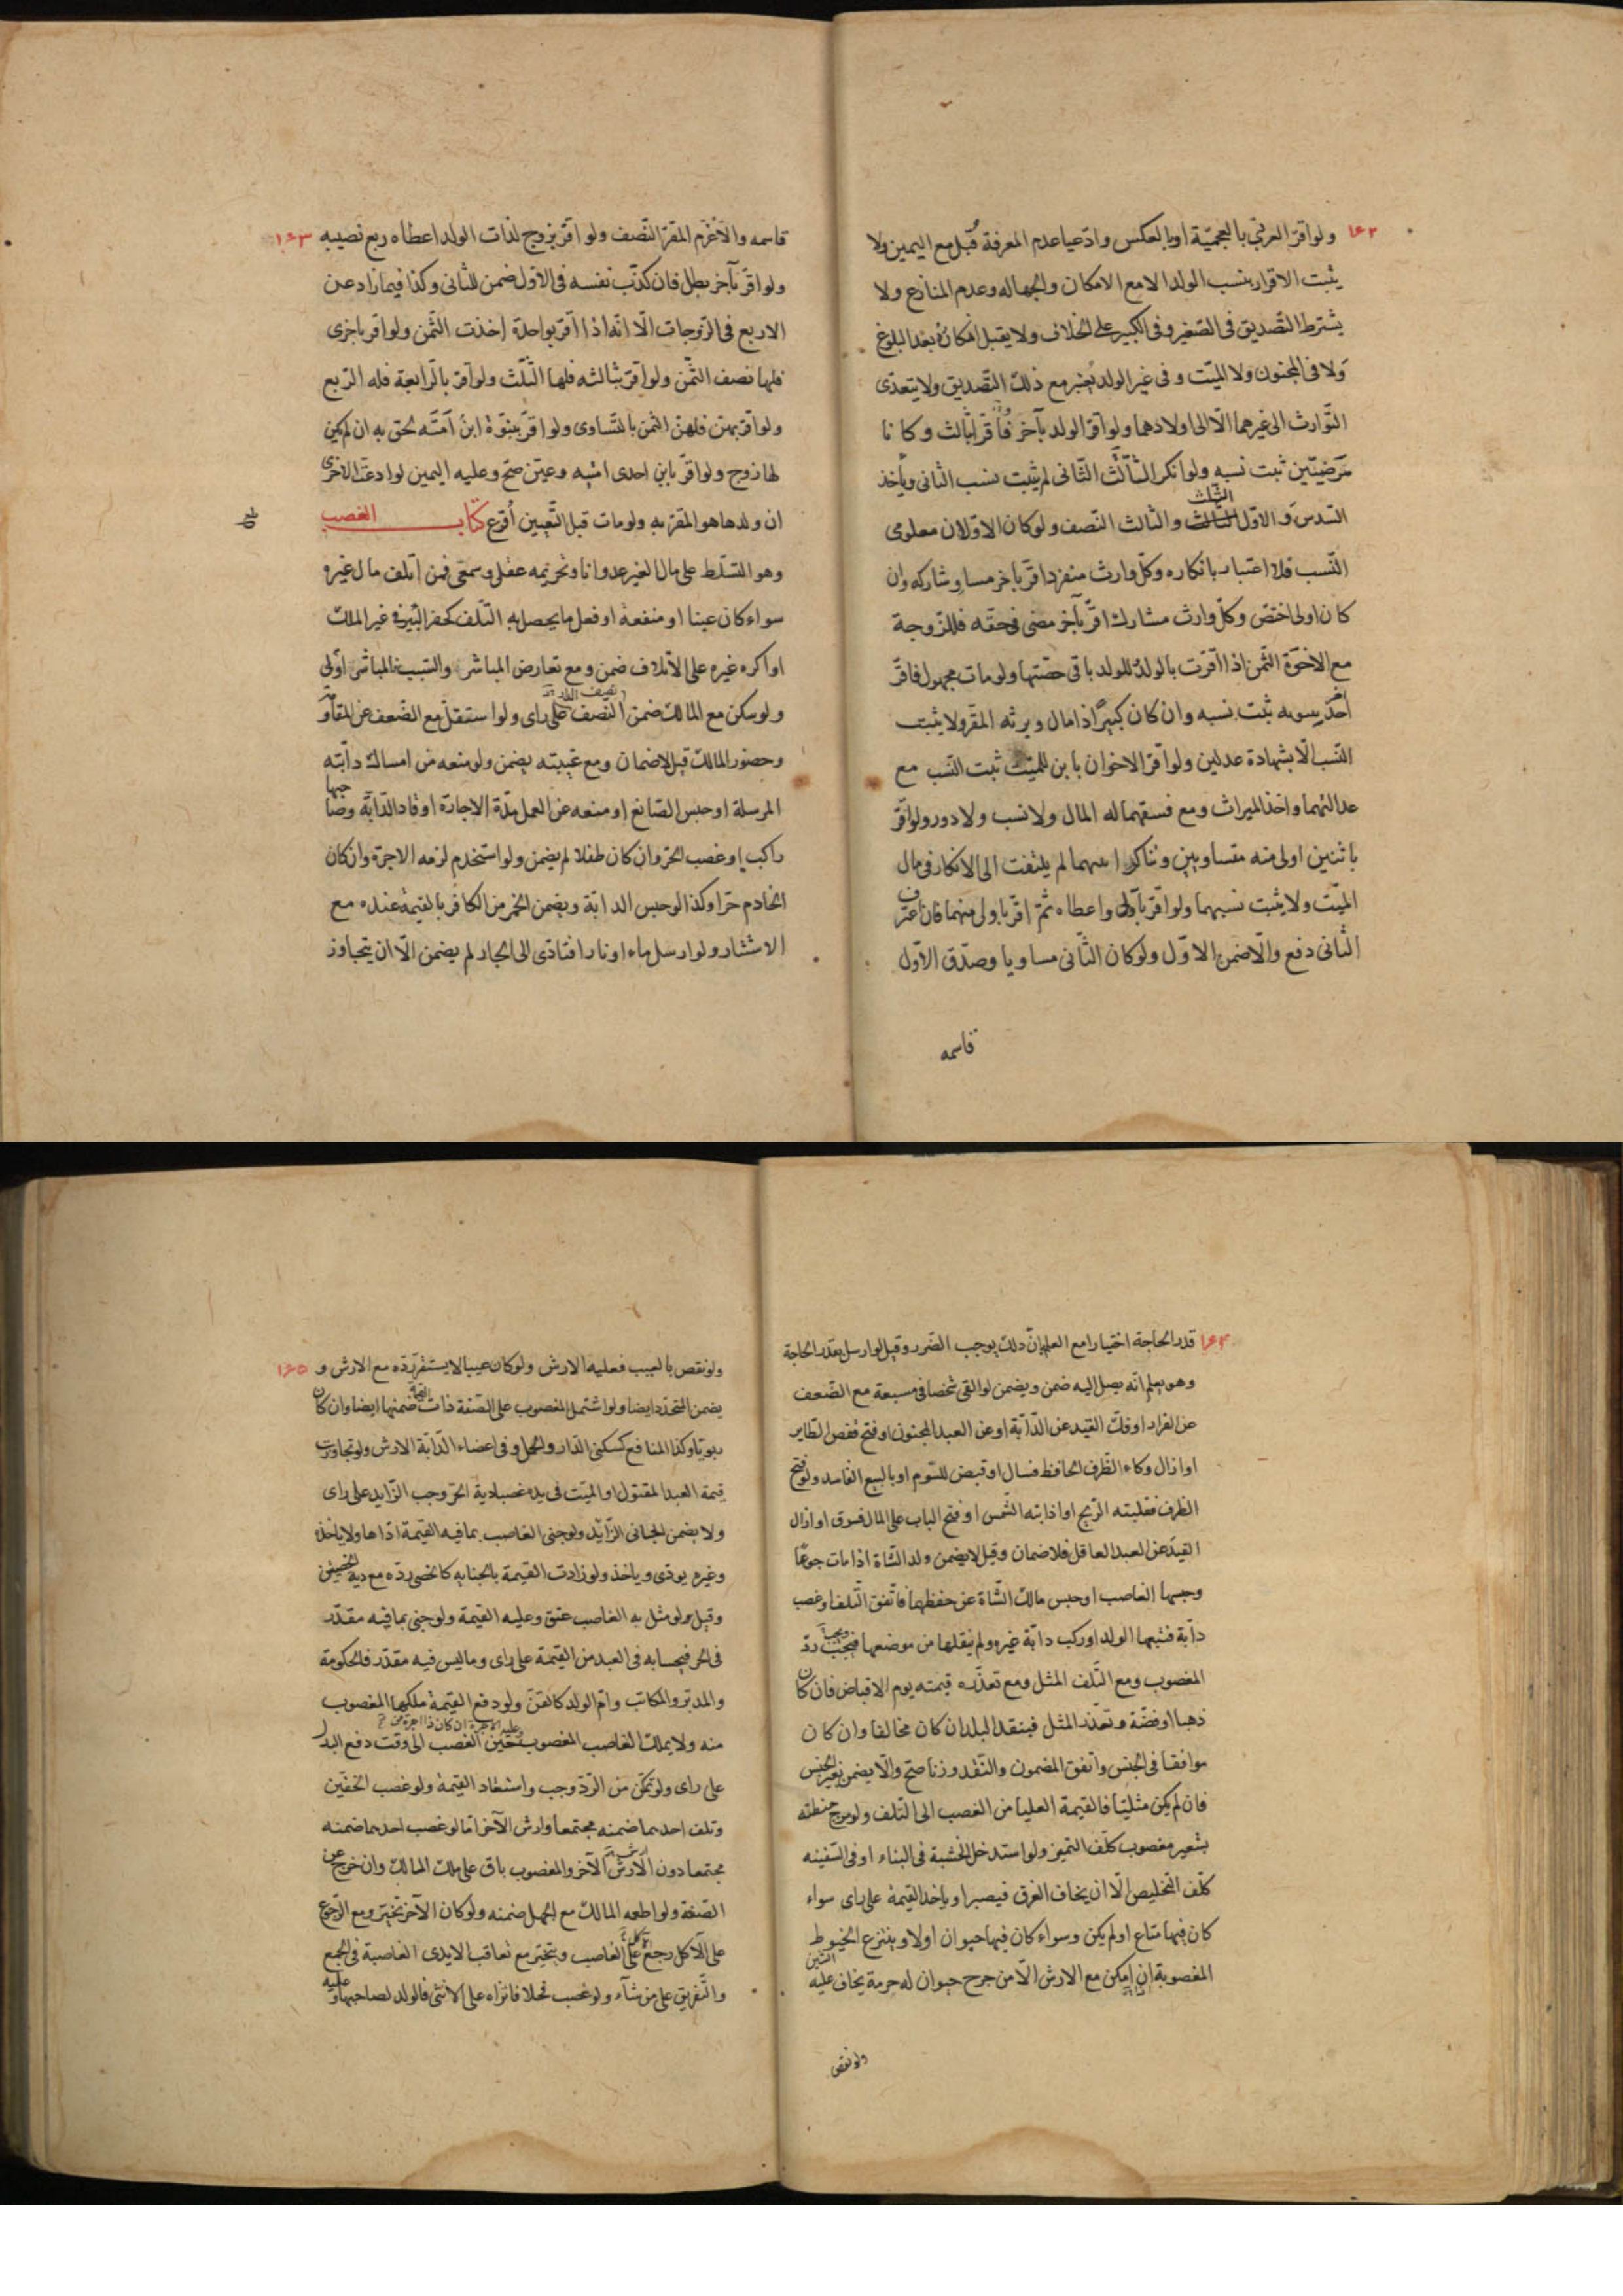 ١٤٢
ولو اقر العربي بالعجمية او بالعكس وادعيا عدم المعرفة قبل مع اليمين ولا
يثبت الاقرار بنسب الولد الا مع الامكان والجهاله وعدم المنازع ولا
يشترط التصديق في الصغير وفي الكبير على الخلاف ولا يقبل انكاره بعد البلوغ
ولا في المجنون ولا الميت وفي غير الولد يعتبر مع ذلك التصديق ولا يتعدى
التوارث الى غيرهما الا الى اولادهما ولو اقر الولد بآخر فاقرا بثالث وكانا
مرضيين ثبت نسبه ولو انكر الثالث الثاني لم يثبت نسب الثاني ويأخذ
السدس والاول الثلث والثالث النصف ولو كان الاولان معلومى
النسب فلا اعتبار بانكاره وكل وارث منفرد اقر بآخر مساو شاركه وان
كان اولى اختص وكل وارث مشارك اقر بآخر مضى في حقه فللزوجة
مع الاخوة الثمن اذا اقرت بالولد وللولد باقى حصتها ولو مات مجهول فاقر
آخر ببنوته ثبت نسبه وان كان كبيرا ذا مال ويرثه المقر ولا يثبت
النسب الا بشهادة عدلين ولو اقر الاخوان بابن للميت ثبت النسب مع
عدالتهما واخذ الميراث ومع فسقهما له المال ولا نسب ولا دور ولو اقر
باثنين اولى منه متساويين وتناكرا انفسهما لم يلتفت الى الانكار في مال
الميت ولا يثبت نسبهما ولو اقر باولى واعطاه ثم اقر باولى منهما فان اعترف
الثاني دفع والا ضمن الاول ولو كان الثاني مساويا وصدق الاول
قاسمه
١٤٣
قاسمه والا غرم المقر النصف ولو اقر بزوج لذات الولد اعطاه ربع نصيبه
ولو اقر بآخر بطل فان كذب نفسه في الاول ضمن للثاني وكذا فيما زاد عن
الاربع في الزوجات الا انه اذا اقر بواحدة اخذت الثمن ولو اقر باخرى
فلها نصف الثمن ولو اقر بثالثه فلها الثلث ولو اقر بالرابعة فله الربع
ولو اقر بهن فلهن الثمن بالتساوى ولو اقر ببنوة ابن امته لحق به ان لم يكن
لها زوج ولو اقر بابن احدى امتيه وعين صح وعليه اليمين لو ادعت الاخرى
ان ولدها هو المقر به ولو مات قبل التعيين أقرع كتاب الغصب
وهو التسلط على مال الغير عدوانا وتحريمه عقلى وسمعى فمن اتلف مال غيره
سواء كان عينا او منفعة او فعل ما يحصل به التلف كحفر البئر في غير الملك
او اكره غيره على الاتلاف ضمن ومع تعارض المباشر والسبب فالمباشر اولى
ولو سكن مع المالك ضمن النصف على راى ولو استقل مع الضعف عن المقاومة
وحضور المالك قيل لا ضمان ومع غيبته يضمن ولو منعه من امساك دابته
المرسلة او حبس الصانع او منعه عن العمل مدة الاجارة او قاد الدابة وصاحبها
راكب او غصب الحر وان كان طفلا لم يضمن ولو استخدم لزمه الاجرة وان كان
الخادم حرا وكذا لو حبس الدابة ويضمن الخمر من الكافر بالقيمة عنده مع
الاستتار ولو ارسل ماء او نارا فتأدى الى الجار لم يضمن الا ان يتجاوز
١٤٤
قدر الحاجة اختيارا مع العلم بان ذلك يوجب الضرر وقيل لو ارسل بقدر الحاجة
وهو يعلم انه يصل اليه ضمن ويضمن لو القى شخصا في مسبعة مع الضعف
عن الفرار او فك القيد عن الدابة او عن العبد المجنون او فتح قفص الطاير
او ازال وكاء الظرف الحافظ فسال او قبض للسوم او بالبيع الفاسد ولو فتح
الظرف فقلبته الريح او اذابته الشمس او فتح الباب على المال فسرق او ازال
القيد عن العبد العاقل فلا ضمان وقيل لا يضمن ولد الشاة اذا مات جوعا
وحبسها الغاصب او حبس مالك الشاة عن حفظها فاتفق التلف او غصب
دابة فتبعها الولد او ركب دابة غيره ولم ينقلها من موضعها فيجب رد
المغصوب ومع التلف المثل ومع تعذره قيمته يوم الاقباض فان كان
ذهبا او فضة وتعذر المثل فبنقد البلد ان كان مخالفا وان كان
موافقا في الجنس واتفق المضمون والنقد وزنا صح والا يضمن بغير الجنس
فان لم يكن مثليا فالقيمة العليا من الغصب الى التلف ولو مزج حنطته
بشعير مغصوب كلف التميز ولو استدخل الخشبة في البناء او في السفينه
كلف التخليص الا ان يخاف الغرق فيصبر او يأخذ القيمة على راى سواء
كان فيها متاع او لم يكن وسواء كان فيها حيوان اولا وينتزع الخيوط
المغصوبة ان امكن مع الارش الا من جرح حيوان له حرمة يخاف عليه
ولو نقص
١٤٥
ولو نقص بالعيب فعليه الارش ولو كان عيبا لا يستقر رده مع الارش و
يضمن المتجدد ايضا ولو اشتمل المغصوب على الصنعة ذات القيمة ضمنها ايضا وان كان
ربويا وكذا المنافع كسكنى الدار والحمل وفي اعضاء الدابة الارش ولو تجاوزت
قيمة العبد المقتول او الميت في يده غصبا دية الحر وجب الزايد على راى
ولا يضمن الجانى الزايد ولو جنى الغاصب بما فيه القيمة اداها ولا يأخذه
وغيره يودى وياخذ ولو زادت القيمة بالجنايه كالخصى رده مع دية الخصيتين
وقيل لو مثل به الغاصب عتق وعليه القيمة ولو جنى بما فيه مقدر
في الحر فبحسابه في العبد من القيمة على راى وما ليس فيه مقدر فالحكومة
والمدبر والمكاتب وام الولد كالقن ولو دفع القيمة ملكها المغصوب
منه ولا يملك الغاصب المغصوب وعليه الاجرة ان كان ذا اجرة من حين الغصب الى وقت دفع البدل
على راى ولو تمكن من الرد وجب واستعاد القيمة ولو غصب الخفين
وتلف احدهما ضمنه مجتمعا وارش الآخر اما لو غصب احدهما ضمنه
مجتمعا دون الارش الآخر والمغصوب باق على ملك المالك وان خرج عن
الصنعة ولو اطعمه المالك مع الجهل ضمنه ولو كان الآخر تخير ومع الرجوع
على الآكل رجع على الغاصب ويتخير مع تعاقب الايدى الغاصبة في الجمع
والتفريق على من شآء ولو غصب فحلا فانزاه على الانثى فالولد لصاحبها وعليه